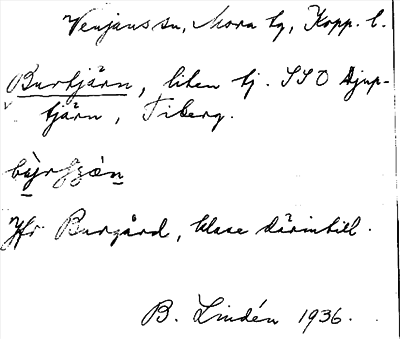 Venjans sn, Mora tg, Kopp. l.
Burtjärn, liten tj. SSO Djup-
tjärn, Tiberg.
Jfr Burgård, klase därintill.
B. Lindén 1936.